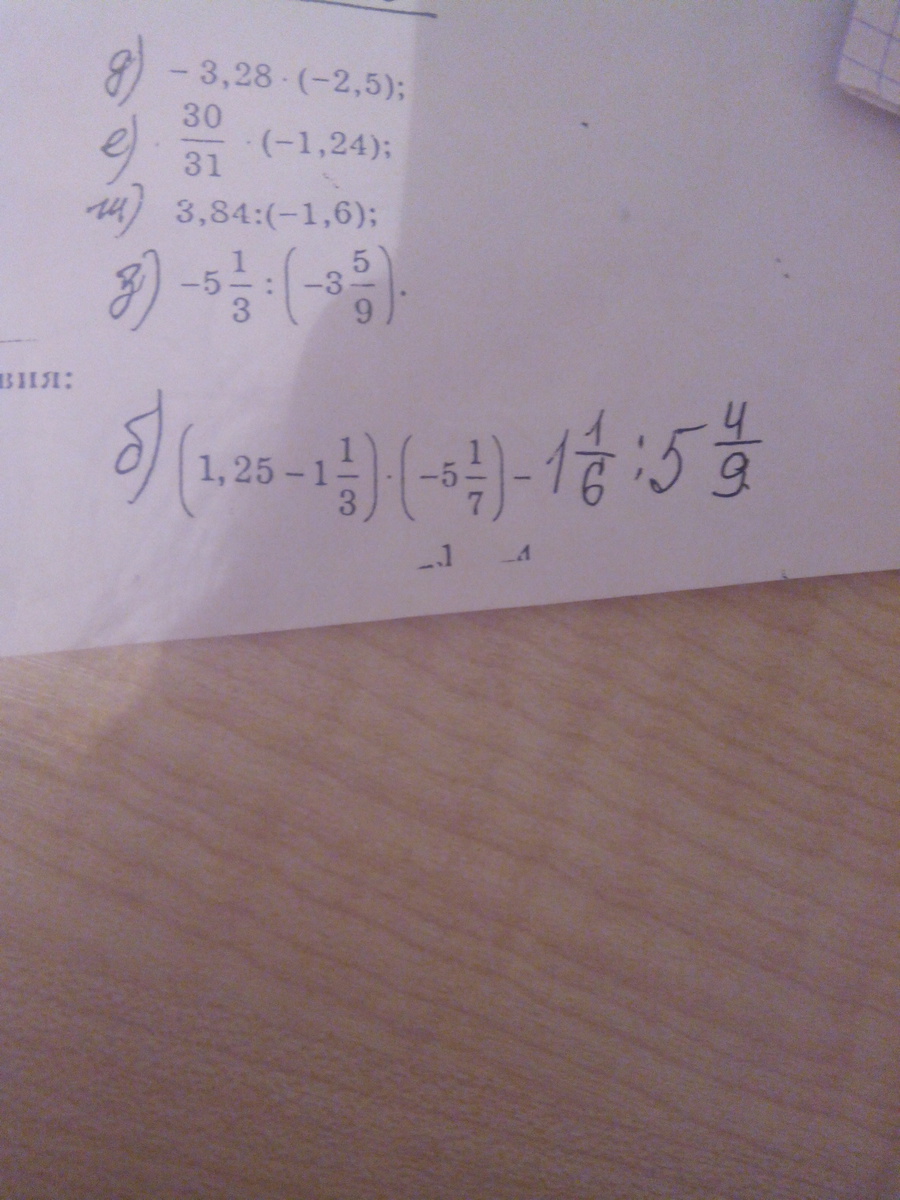 д) − 3,28 · (−2,5);
е) 30/31 · (−1,24);
ж) 3,84:(−1,6);
з) −5 1/3 : (−3 5/9).
вия:
б) (1,25 − 1 1/3) · (−5 1/7) − 1 1/6 : 5 4/9